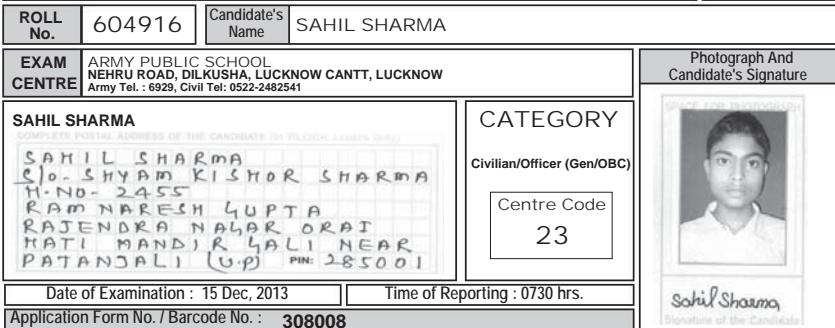 ROLL No. 604916 Candidate's Name SAHIL SHARMA
EXAM CENTRE
ARMY PUBLIC SCHOOL
NEHRU ROAD, DILKUSHA, LUCKNOW CANTT, LUCKNOW
Army Tel. : 6929, Civil Tel: 0522-2482541
Photograph And
Candidate's Signature
SAHIL SHARMA
COMPLETE POSTAL ADDRESS OF THE CANDIDATE (In BLOCK Letters only)
SAHIL SHARMA
S/o- SHYAM KISHOR SHARMA
H-NO- 2455
RAM NARESH GUPTA
RAJENDRA NAGAR ORAI
HATI MANDIR GALI NEAR
PATANJALI (U.P) PIN: 285001
CATEGORY
Civilian/Officer (Gen/OBC)
Centre Code
23
SPACE FOR PHOTOGRAPH
Sahil Sharma
Signature of the Candidate
Date of Examination : 15 Dec, 2013
Time of Reporting : 0730 hrs.
Application Form No. / Barcode No. : 308008